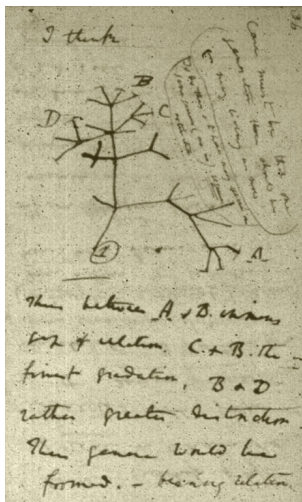 36
I think
Case must be that one
generation then should be
as many living as now
To do this & to have many species in
same genus (as is) requires
extinction
B
D
C
A
1
Thus between A & B immens
gap of relation. C & B. the
finest gradation, B & D
rather greater distinction
Thus genera would be
formed. – bearing relation